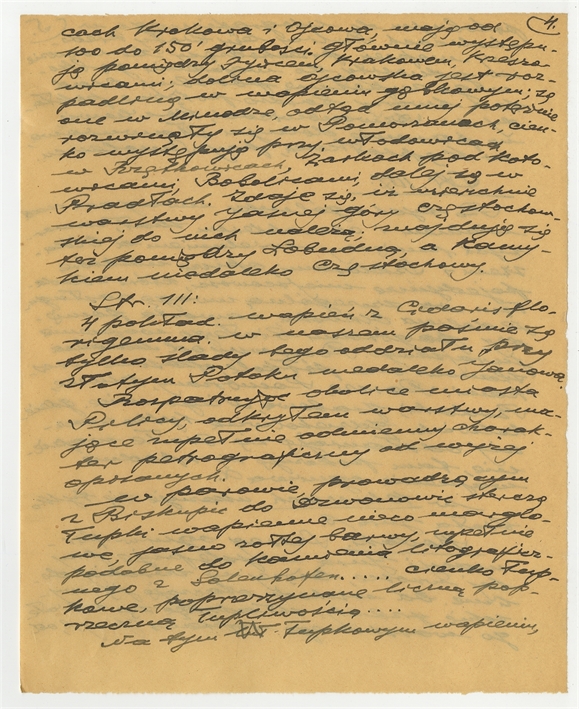 4.
cach Krakowa i Ojcowa, mają od
100 do 150' grubości. Głównie występu-
ją pomiędzy Żyrcem, Krakowem, Krzeszo-
wicami; dolina ojcowska jest roz-
padliną w wapieniu gąbkowym; są
one w Mirowie, odtąd mniej potężnie
rozwinięty się w Pomorzanach, cien-
ko występują przy Włodowicach,
w Rzędkowicach, Żarkach pod Koto-
wicami, Bobolicami, dalej są w
Prądłach. Zdaje się, iż wierzchnie
warstwy Jasnej Góry Częstochow-
skiej do nich należą; znajdują się
też pomiędzy Łabudną, a Kamy-
kiem niedaleko Częstochowy.
Str. 111:
4 pokład. wapień z Cidaris flo-
rigemma. w naszem paśmie są
tylko ślady tego oddziału, przy
Złotym Potoku niedaleko Janowa.
Rozpatrując okolice miasta
Pilicy, odkryłem warstwy, ma-
jące zupełnie odmienny charak-
ter petrograficzny od wyżej
opisanych.
w parowie prowadzącym
z Biskupic do Dzwonowic sterczą
łupki wapienne nieco marglo-
we, jasno żółtej barwy, zupełnie
podobne do kamienia litograficz-
nego z Solenhofen..... cienko łup-
kowe, poprzerzynane liczną pop-
rzeczną łupliwością....
Na tym łupkowym wapieniu,